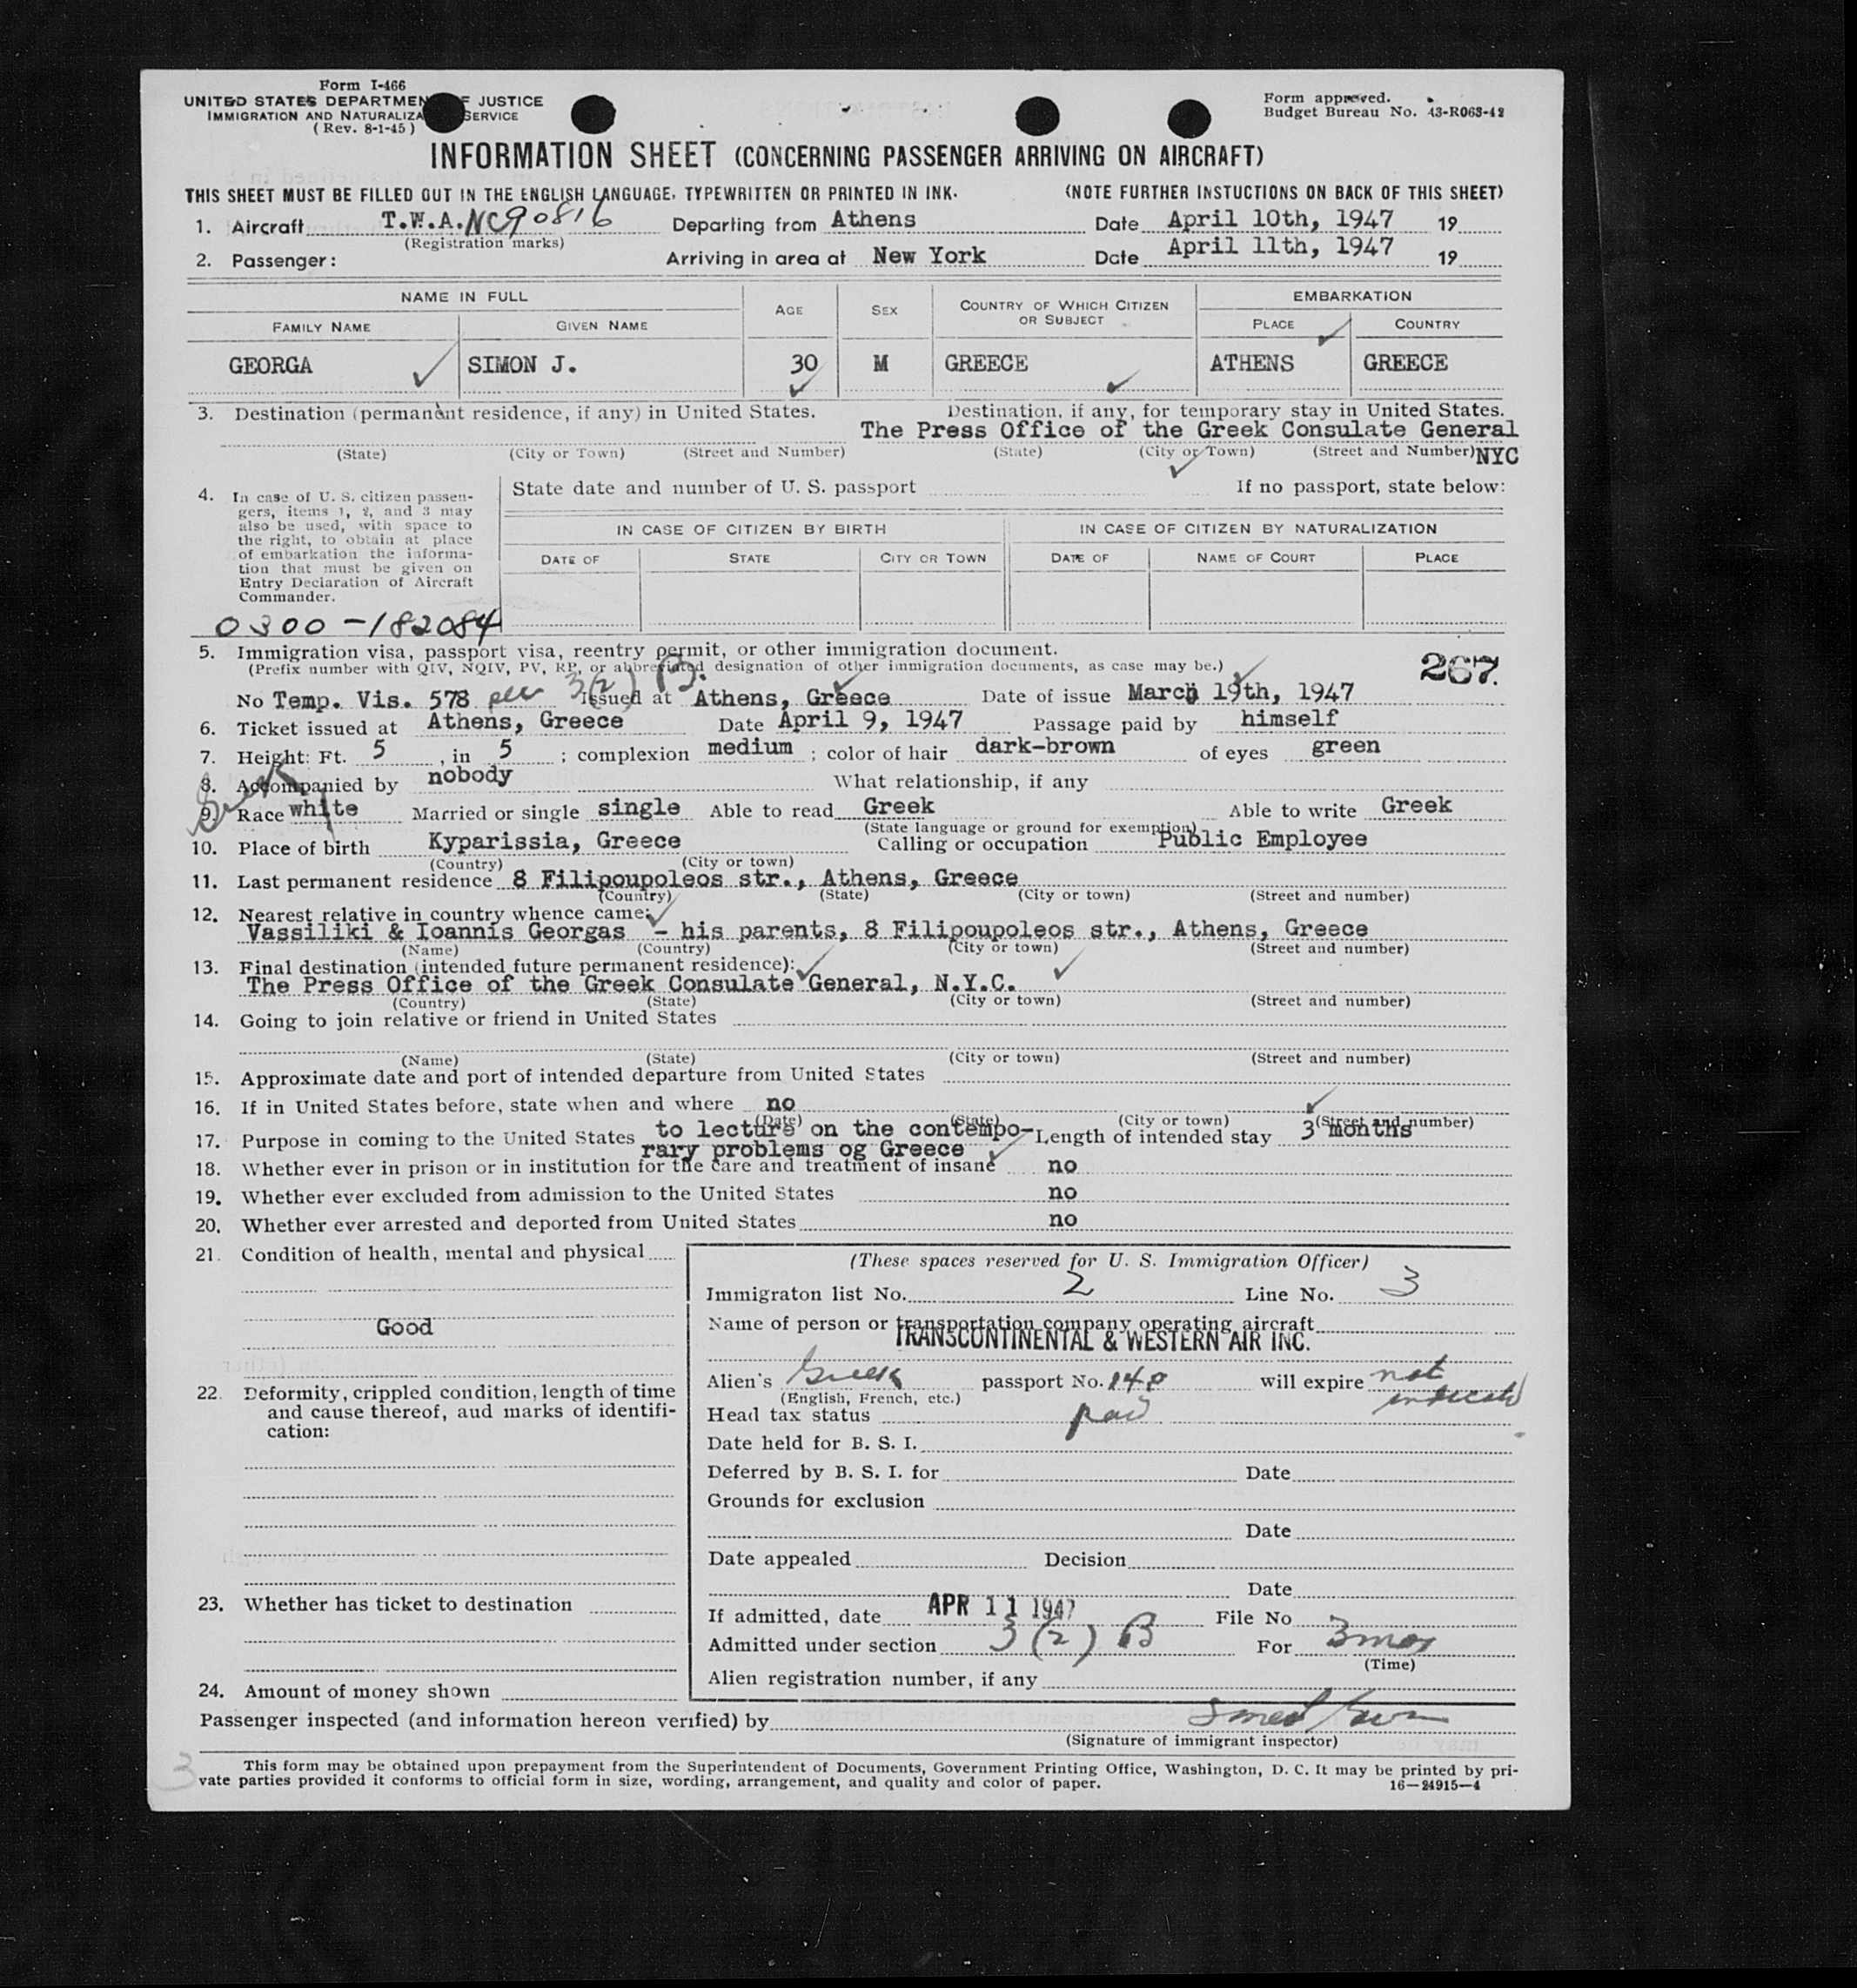 Form I-466
UNITED STATES DEPARTMENT OF JUSTICE
IMMIGRATION AND NATURALIZATION SERVICE
(Rev. 8-1-45)
Form approved.
Budget Bureau No. 43-R063-42
INFORMATION SHEET (CONCERNING PASSENGER ARRIVING ON AIRCRAFT)
THIS SHEET MUST BE FILLED OUT IN THE ENGLISH LANGUAGE, TYPEWRITTEN OR PRINTED IN INK. (NOTE FURTHER INSTUCTIONS ON BACK OF THIS SHEET)
1. Aircraft T.W.A. NC90816 Departing from Athens Date April 10th, 1947 19
(Registration marks)
2. Passenger: Arriving in area at New York Date April 11th, 1947 19
NAME IN FULL AGE SEX COUNTRY OF WHICH CITIZEN OR SUBJECT EMBARKATION
FAMILY NAME GIVEN NAME PLACE COUNTRY
GEORGA SIMON J. 30 M GREECE ATHENS GREECE
3. Destination (permanent residence, if any) in United States. Destination, if any, for temporary stay in United States.
The Press Office of the Greek Consulate General
(State) (City or Town) (Street and Number) (State) (City or Town) (Street and Number) NYC
4. In case of U. S. citizen passen-
gers, items 1, 2, and 3 may
also be used, with space to
the right, to obtain at place
of embarkation the informa-
tion that must be given on
Entry Declaration of Aircraft
Commander.
State date and number of U. S. passport If no passport, state below:
IN CASE OF CITIZEN BY BIRTH IN CASE OF CITIZEN BY NATURALIZATION
DATE OF STATE CITY OR TOWN DATE OF NAME OF COURT PLACE
0300-182084
5. Immigration visa, passport visa, reentry permit, or other immigration document.
(Prefix number with QIV, NQIV, PV, RP, or abbreviated designation of other immigration documents, as case may be.)
267.
No Temp. Vis. 578 sec 3(2) B. Issued at Athens, Greece Date of issue March 19th, 1947
6. Ticket issued at Athens, Greece Date April 9, 1947 Passage paid by himself
7. Height: Ft. 5 , in 5 ; complexion medium ; color of hair dark-brown of eyes green
8. Accompanied by nobody What relationship, if any
Greek
9. Race white Married or single single Able to read Greek Able to write Greek
(State language or ground for exemption)
10. Place of birth Kyparissia, Greece Calling or occupation Public Employee
(Country) (City or town)
11. Last permanent residence 8 Filipoupoleos str., Athens, Greece
(Country) (State) (City or town) (Street and number)
12. Nearest relative in country whence came:
Vassiliki & Ioannis Georgas - his parents, 8 Filipoupoleos str., Athens, Greece
(Name) (Country) (City or town) (Street and number)
13. Final destination (intended future permanent residence):
The Press Office of the Greek Consulate General, N.Y.C.
(Country) (State) (City or town) (Street and number)
14. Going to join relative or friend in United States
(Name) (State) (City or town) (Street and number)
15. Approximate date and port of intended departure from United States
16. If in United States before, state when and where no
(Date) (State) (City or town) (Street and number)
17. Purpose in coming to the United States to lecture on the contempo- Length of intended stay 3 months
rary problems og Greece
18. Whether ever in prison or in institution for the care and treatment of insane no
19. Whether ever excluded from admission to the United States no
20. Whether ever arrested and deported from United States no
21. Condition of health, mental and physical
Good
22. Deformity, crippled condition, length of time
and cause thereof, aud marks of identifi-
cation:
23. Whether has ticket to destination
24. Amount of money shown
(These spaces reserved for U. S. Immigration Officer)
Immigraton list No. 2 Line No. 3
Name of person or transportation company operating aircraft
TRANSCONTINENTAL & WESTERN AIR INC.
Alien's Greek passport No. 148 will expire not
(English, French, etc.) indicated
Head tax status paid
Date held for B. S. I.
Deferred by B. S. I. for Date
Grounds for exclusion
Date
Date appealed Decision
Date
If admitted, date APR 11 1947 File No
Admitted under section 3(2) B For 3 mos
(Time)
Alien registration number, if any
Passenger inspected (and information hereon verified) by
(Signature of immigrant inspector)
3
This form may be obtained upon prepayment from the Superintendent of Documents, Government Printing Office, Washington, D. C. It may be printed by pri-
vate parties provided it conforms to official form in size, wording, arrangement, and quality and color of paper. 16-24915-4